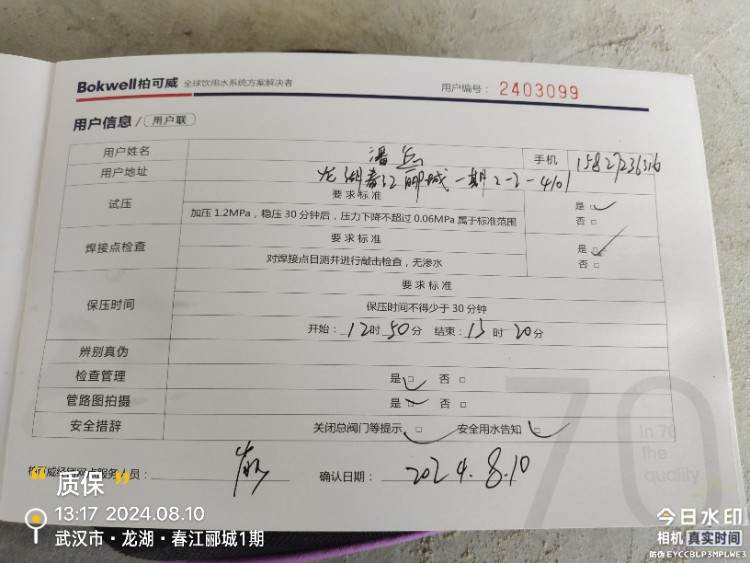 Bokwell柏可威 全球饮用水系统方案解决者
用户编号： 2403099
用户信息 / 用户联
用户姓名 潘 手机 15827236516
用户地址 龙湖春江郦城一期2-2-401
试压 要求标准 是□
加压1.2MPa，稳压30分钟后，压力下降不超过0.06MPa属于标准范围 否□
焊接点检查 要求标准 是□
对焊接点目测并进行敲击检查，无渗水 否□
保压时间 要求标准
保压时间不得少于30分钟
开始：12时50分 结束：13时20分
辨别真伪
检查管理 是□ 否□
管路图拍摄 是□ 否□
安全措辞 关闭总阀门等提示 □ 安全用水告知 □
服务人员： 确认日期： 2024.8.10
70
In 70
the
quality
“质保”
13:17 2024.08.10
武汉市·龙湖·春江郦城1期
今日水印
相机 真实时间
防伪 EYCCBLP3MPLWE3